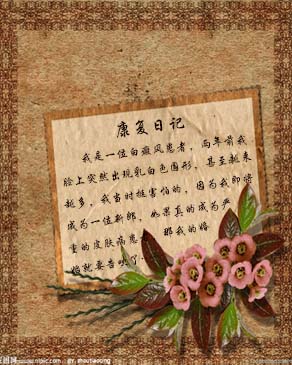 康复日记
我是一位白癜风患者，两年前我
脸上突然出现乳白色图形，甚至越来
越多，我当时挺害怕的，因为我即将
成为一位新郎，如果真的成为严
重的皮肤病患 那我的婚
姻就要告吹了
www.nipic.com BY